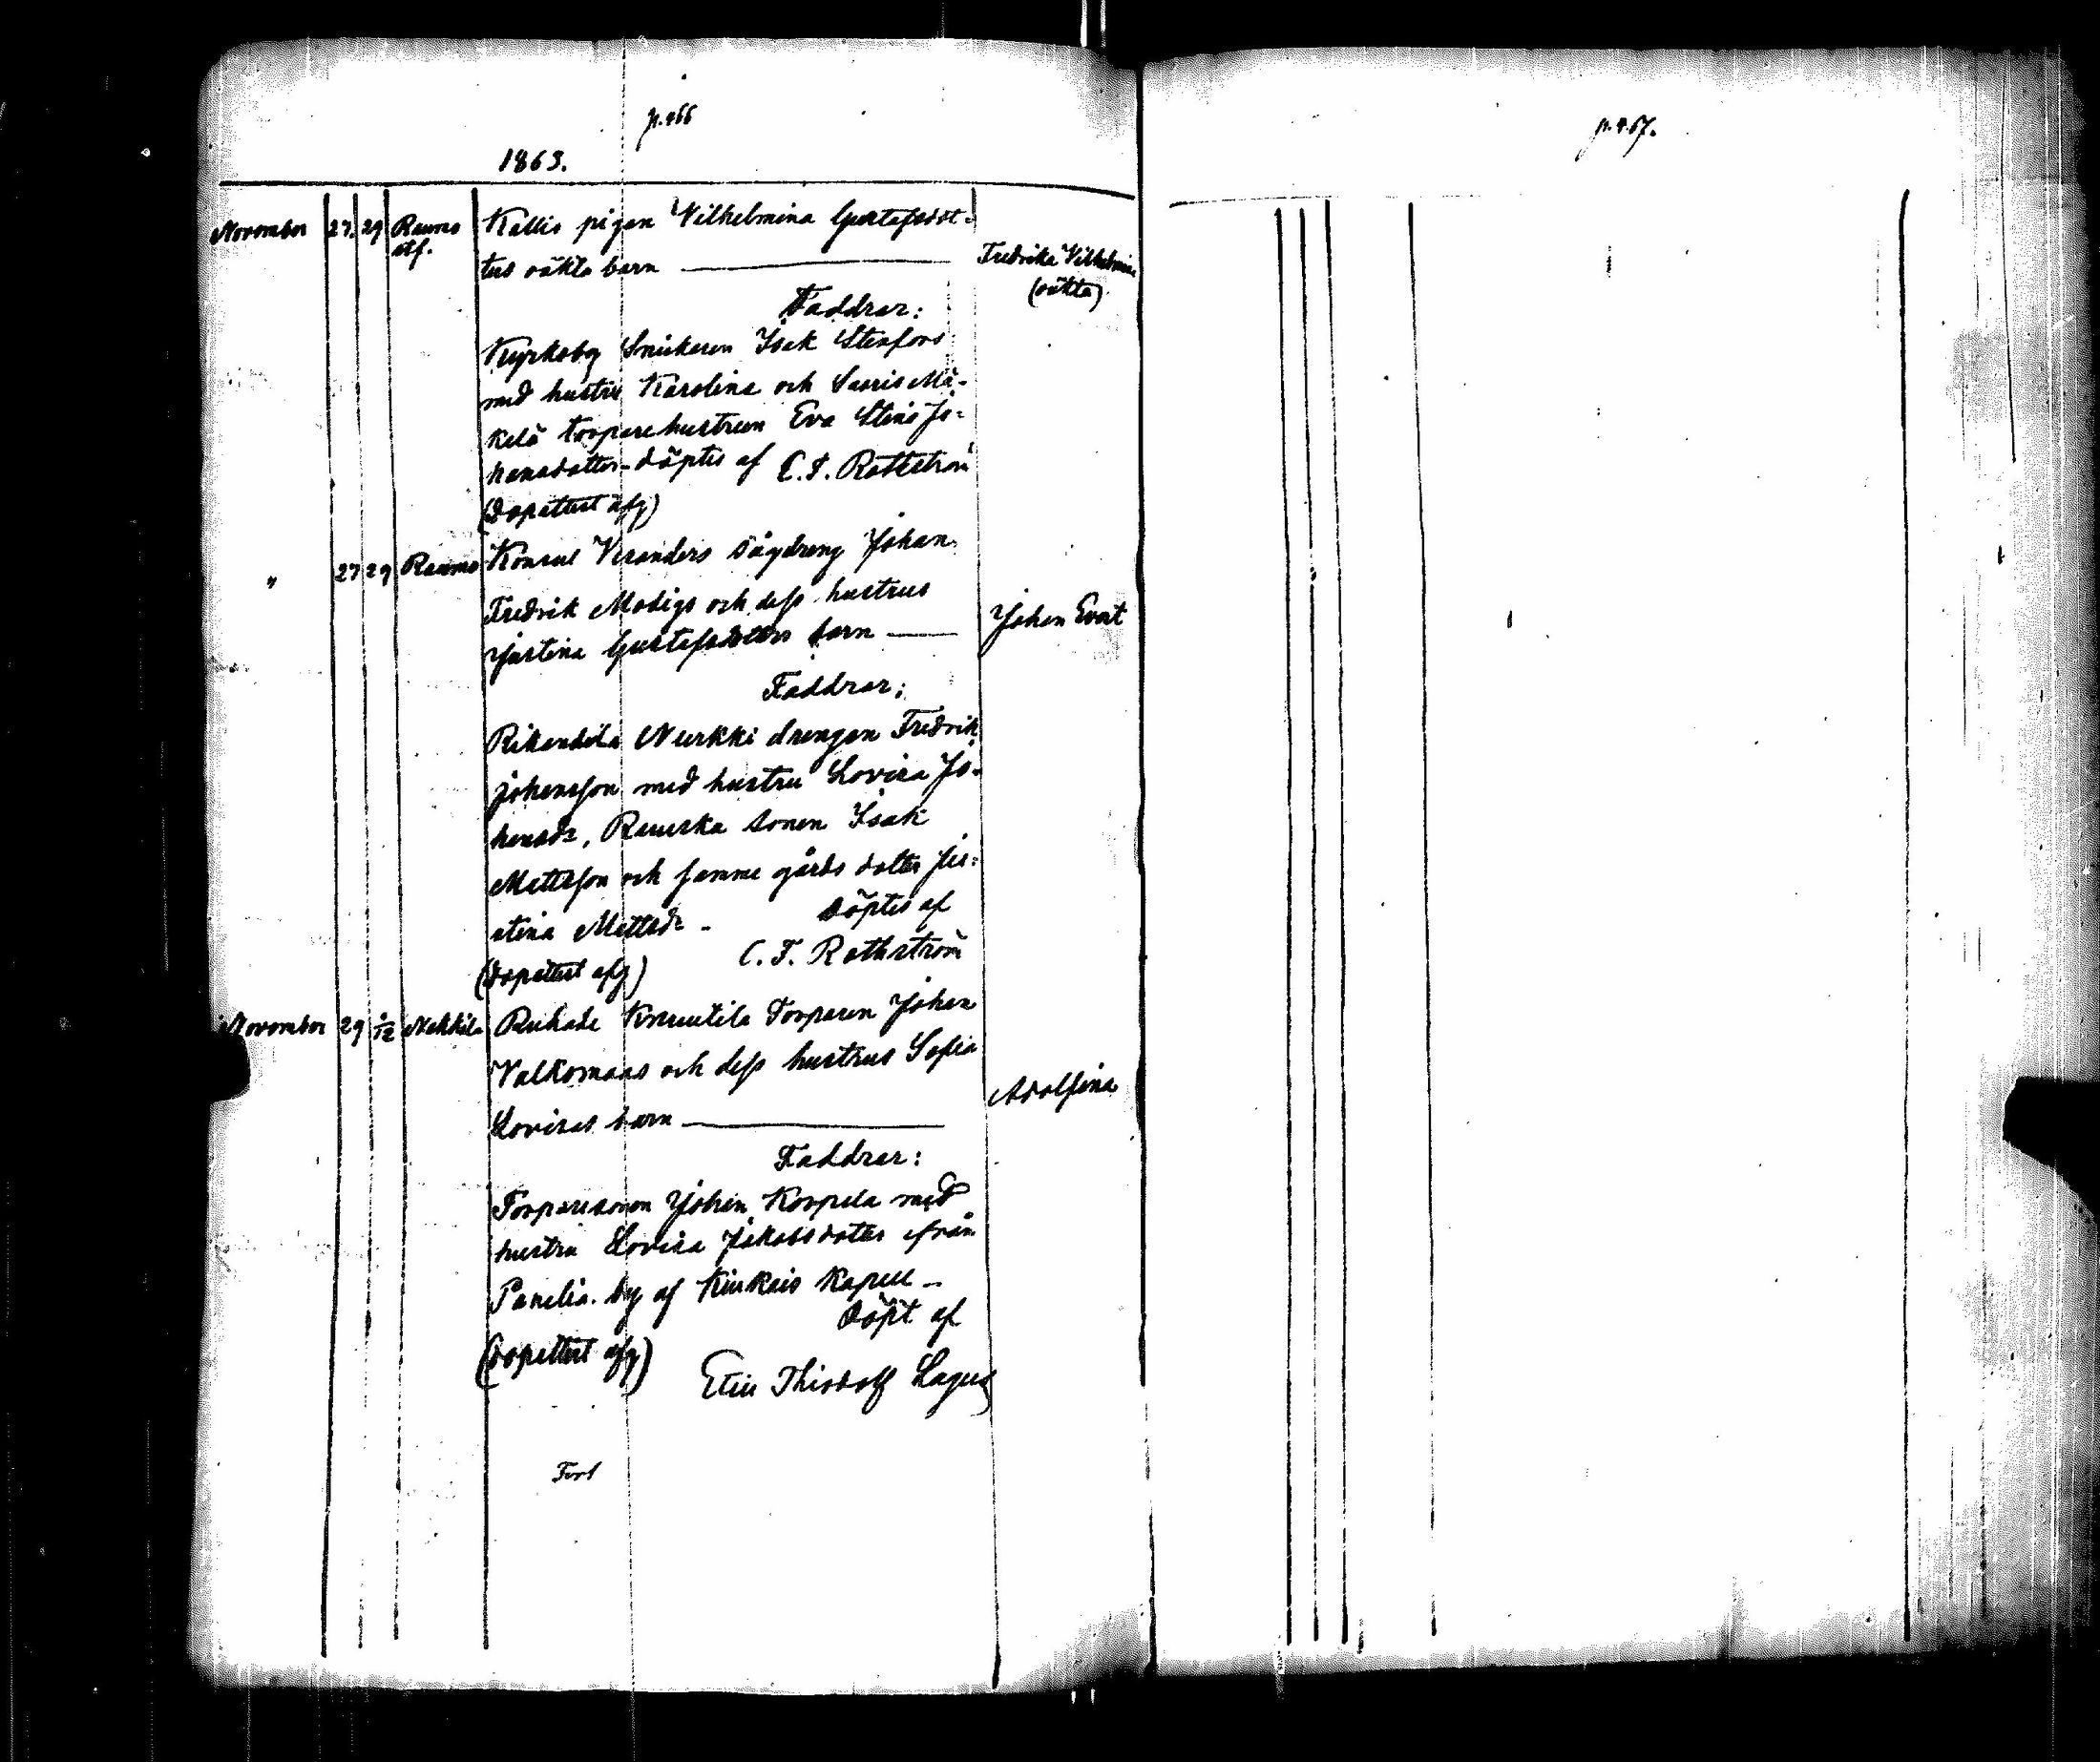 p. 466
p. 467.
1863.
November 27. 29 Raumo Kallis pigan Vilhelmina Gustafsdot-
stf. ters oäkta barn Fredrika Vilhelmina
(oäkta)
Faddrar:
Kyrkoby Snickaren Isak Stenfors
med hustru Karolina och Suoris Mä-
kelä torparehustrun Eva Stina Jo-
hansdotter - döptes af C. F. Rothström
(Dopattest afg)
" 27 29 Raumo Konsul Veranders sågdreng Johan
Fredrik Modigs och dess hustrus
Justina Gustafsdotters barn Johan Evert
Faddrar:
Rikandila Nurkki drengen Fredrik
Johansson med hustru Lovisa Jo-
hansdr, Rauska sonen Isak
Mattsson och samme gårds dotter Jus-
tina Mattsdr - döptes af
(dopattest afg) C. F. Rothström
November 29 1/12 Nakkila Ruhade Knuutila Torparen Johan
Valkomaas och dess hustrus Sofia
Lovisas barn Adolfina
Faddrar:
Torparesonen Johan Korpela med
hustru Lovisa Jakobsdotter ifrån
Panelia by af Kiukais Kapell -
döpt af
(dopattest afg) Elis Thiodolf Lagus
Fort